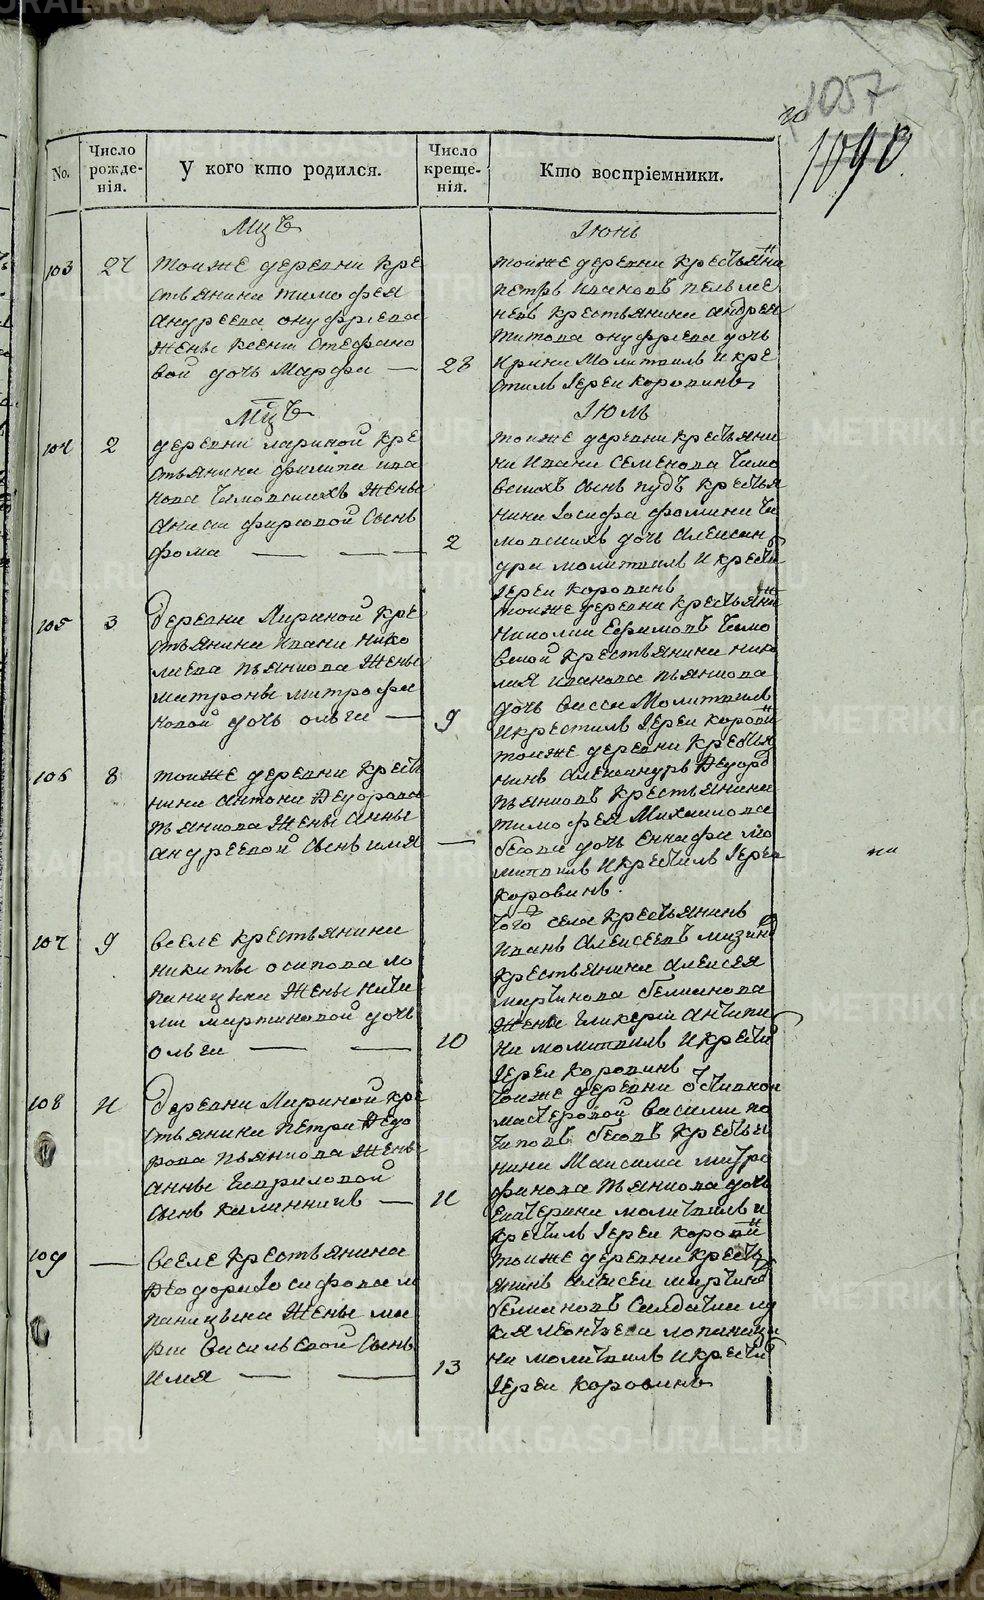 1057
1090
No.
Число рожде- нія.
У кого кто родился.
Число креще- нія.
Кто воспріемники.
Мцъ
Іюнь
103
27
тоиже деревни кре
стьянина тимофея
андреева онуфриева
жены ксении стефано
вой дочь Марфа
28
тоиже деревни крестьянинъ
петръ ивановъ пельме
невъ крестьянина андрея
титова онуфриева дочь
Ирина Молитвилъ и кре
стилъ Іерей коровинъ
Мцъ
Іюль
104
2
деревни лариной кре
стьянина филипа ива
нова
жены
сынъ
фома
2
тоиже деревни крестьяни
на ивана семенова
сынъ пудъ крестья
нина Іосифа фомина
дочь алексан
дра молитвилъ и крести
Іерей коровинъ
105
3
деревни Лариной кре
стьянина ивана нико
лаева пьянкова жены
матроны митрофа
новой дочь ольга
9
тоиже деревни крестьянинъ
николай Ефимовъ
крестьянина нико
лая иванова пьянкова
дочь васса Молитвилъ
и крестилъ Іерей коровинъ
106
8
тоиже деревни кресть
нина антона Федорова
пьянкова жены анны
андреевой сынъ илья
тоиже деревни крестья
нинъ александръ Федоровъ
пьянковъ крестьянина
тимофея Михаилова
дочь мо
литвилъ и крестилъ Іерей
коровинъ.
107
9
вселе крестьянина
никиты осипова ло
паницына жены
мартиновой дочь
ольга
10
того села крестьянинъ
иванъ алексеевъ мизинъ
крестьянина алексея
мартинова
жена гликерия антипи
на молитвилъ и крести
Іерей коровинъ
108
11
деревни Лариной кре
стьянина петра Федо
рова пьянкова жены
анны гавриловой
сынъ калинникъ
11
тоиже деревни отставной
мастеровой василий по
таповъ крестья
нина Максима митро
фанова пьянкова дочь
Екатерина молитвилъ и
крестилъ Іерей коровинъ
109
вселе крестьянина
Феодора Іосифова ло
паницына жены ма
рии васильевой сынъ
илья
13
тоиже деревни кресть
янинъ алексей мартиновъ
солдатка лу
керья
лопаницы
на молитвилъ и крестилъ
Іерей коровинъ
METRIKI.GASO-URAL.RU